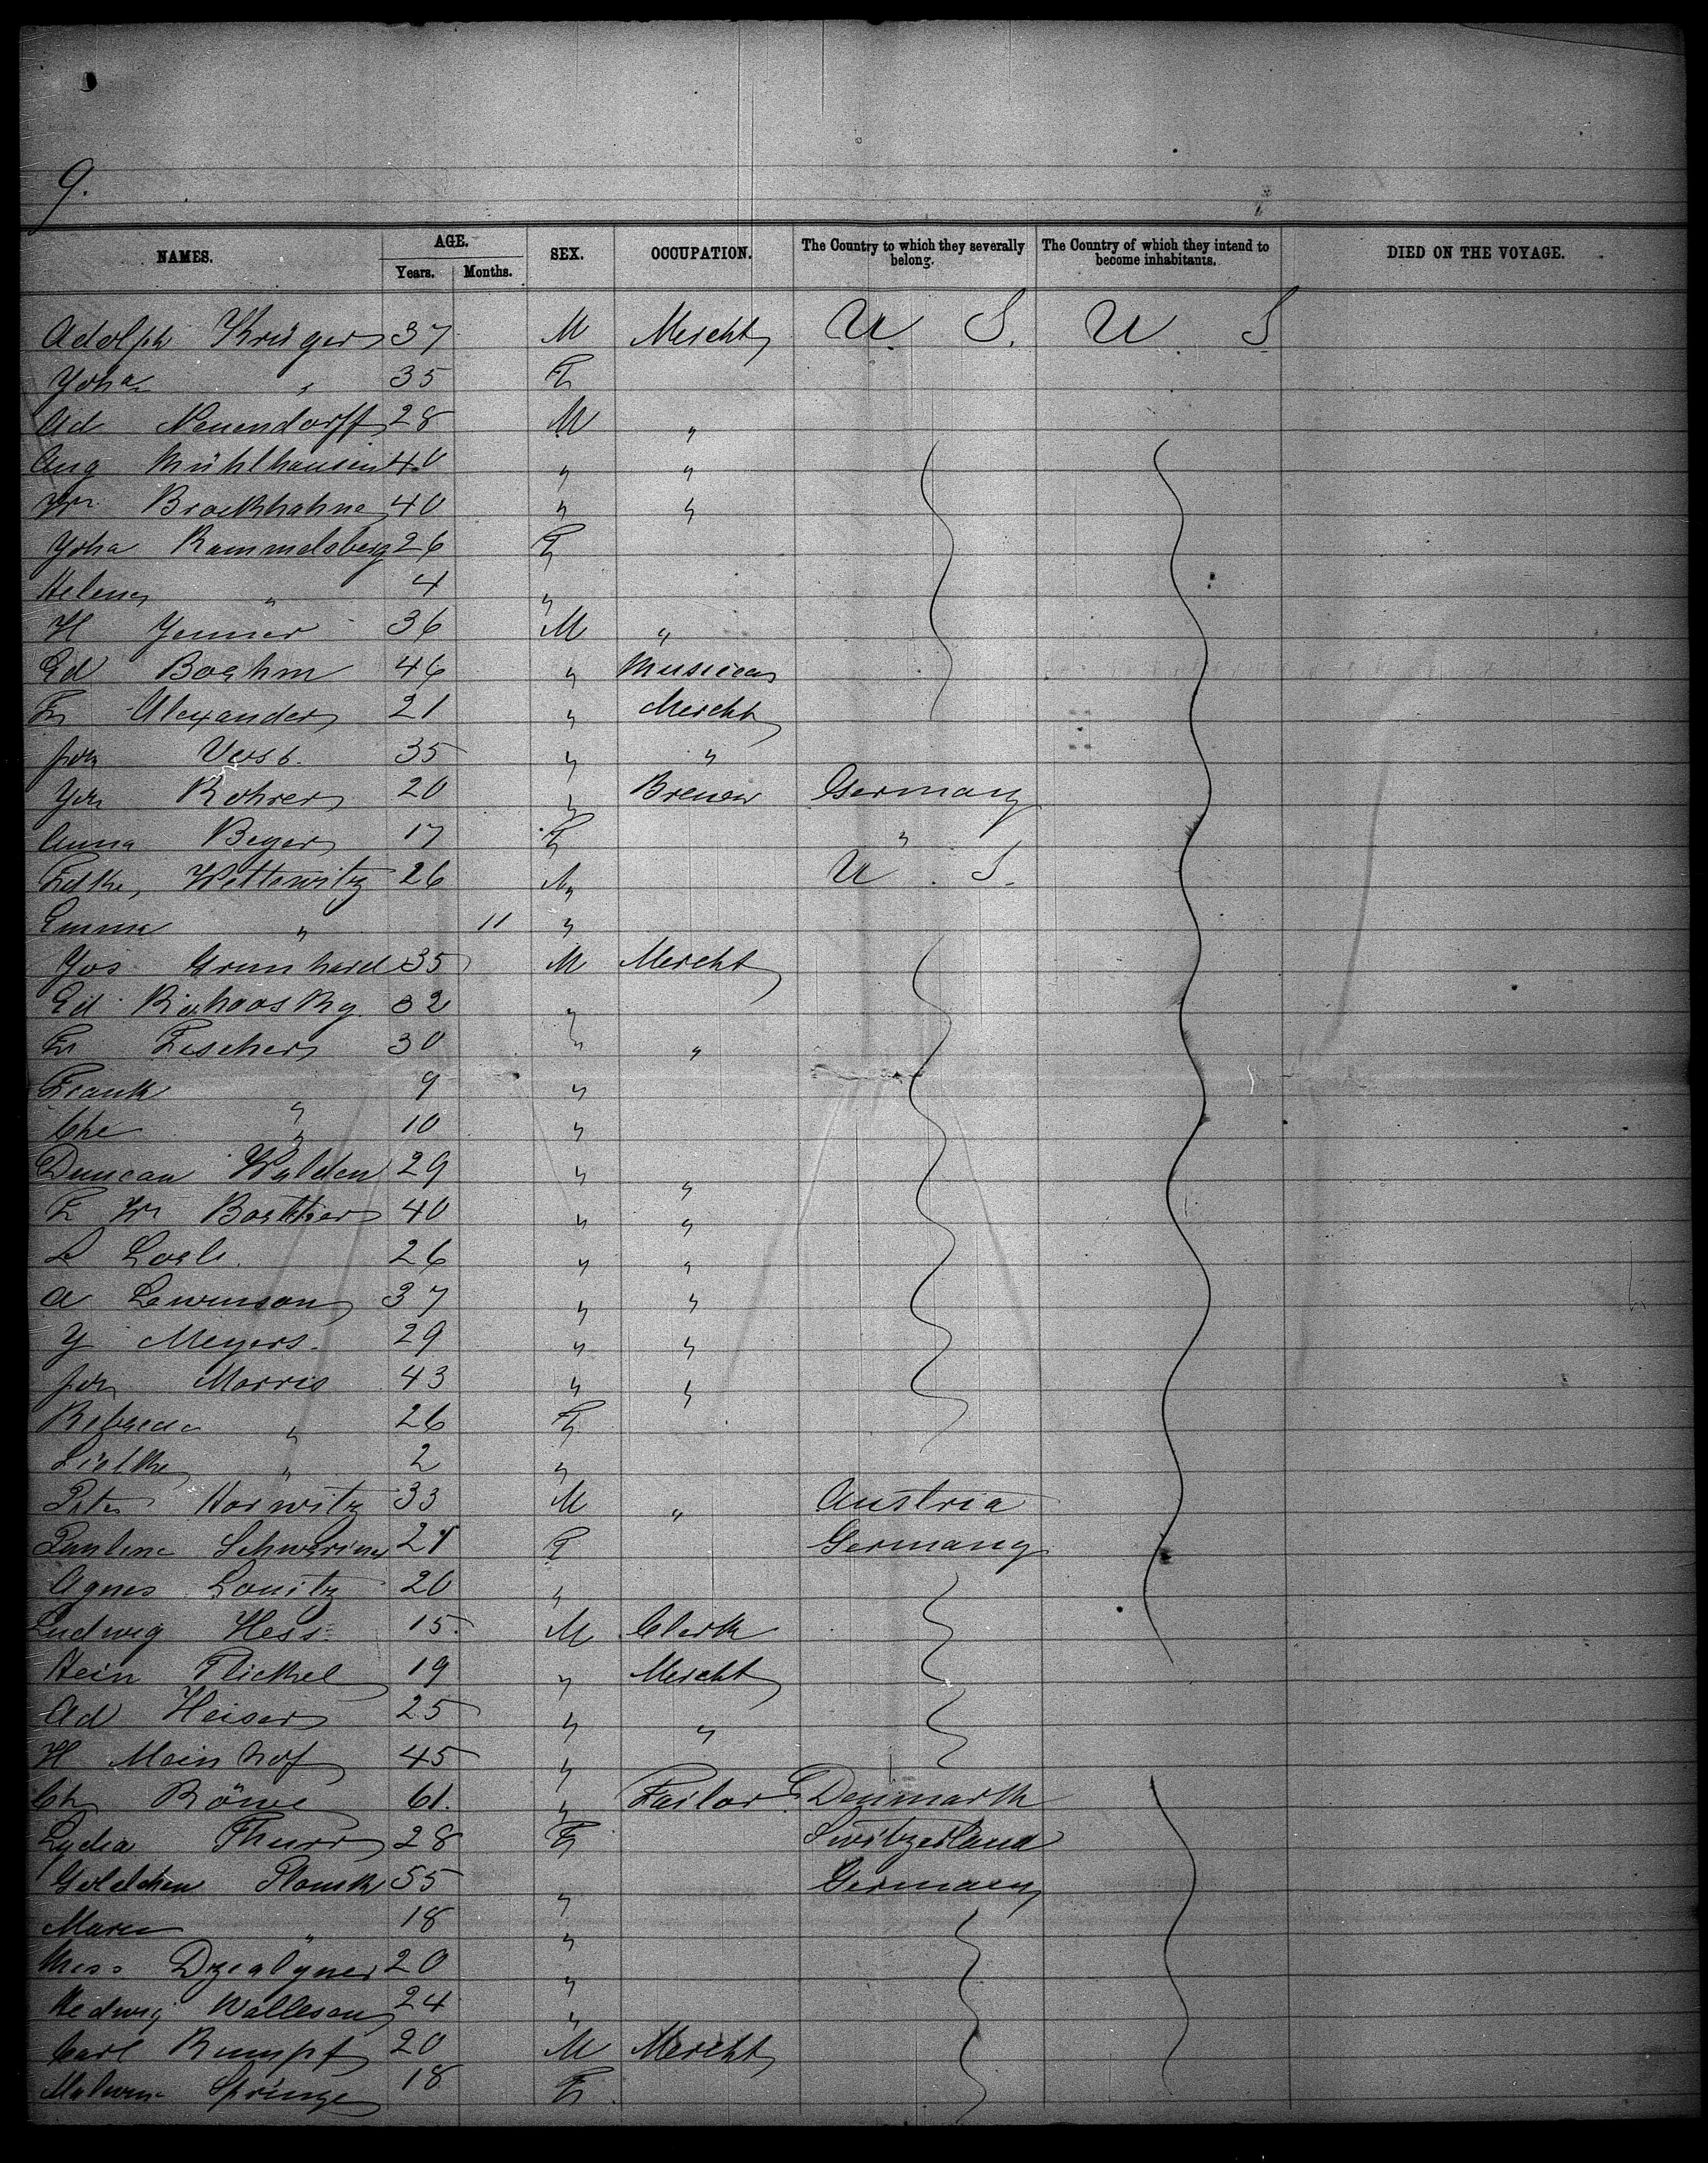 9.
NAMES. AGE. SEX. OCCUPATION. The Country to which they severally belong. The Country of which they intend to become inhabitants. DIED ON THE VOYAGE.
Years. Months.
Adolph Krüger 37 M Mercht U S. U S
Joha " 35 F
Ad Neuendorff 28 M "
Aug Mühlhausen 40 " "
Wm 40 " "
Joha Rammelsberg 26 F
Helene " 4 "
H Jenner 36 M "
Ed Boehm 46 " Musican
Fr Alexander 21 " Mercht
35 " "
Rohrer 20 " Brewer Germany
Anna Beyer 17 F "
Wettewitz 26 U. S.
Emma " 11 "
Jos Grunhard 35 M Mercht
Ed 32 "
Fr Fischer 30 " "
Frank " 9 "
Che " 10 "
Duncan Walden 29 " "
F Wm Boettier 40 " "
L 26 " "
A Lewinson 37 " "
J Meyers. 29 " "
Morris 43 " "
Rebecca " 26 F
" 2 "
Peter Horwitz 33 M " Austria
Pauline Schweriner 21 F Germany
Agnes Lonitz 20 "
Ludwig Hess 15. M Clerk
Hein Flickel 19 " Mercht
Ad Heiser 25 " "
H Meinhof 45 "
Ch Röwe 61. " Tailor Denmark
Lydia Thurr 28 F Switzerland
Goldchen Plonsk 55 " Germany
Marie " 18 "
Miss Dzialyner 20 "
Hedwig Walleson 24 "
Carl Rumpf 20 M Mercht
18 F